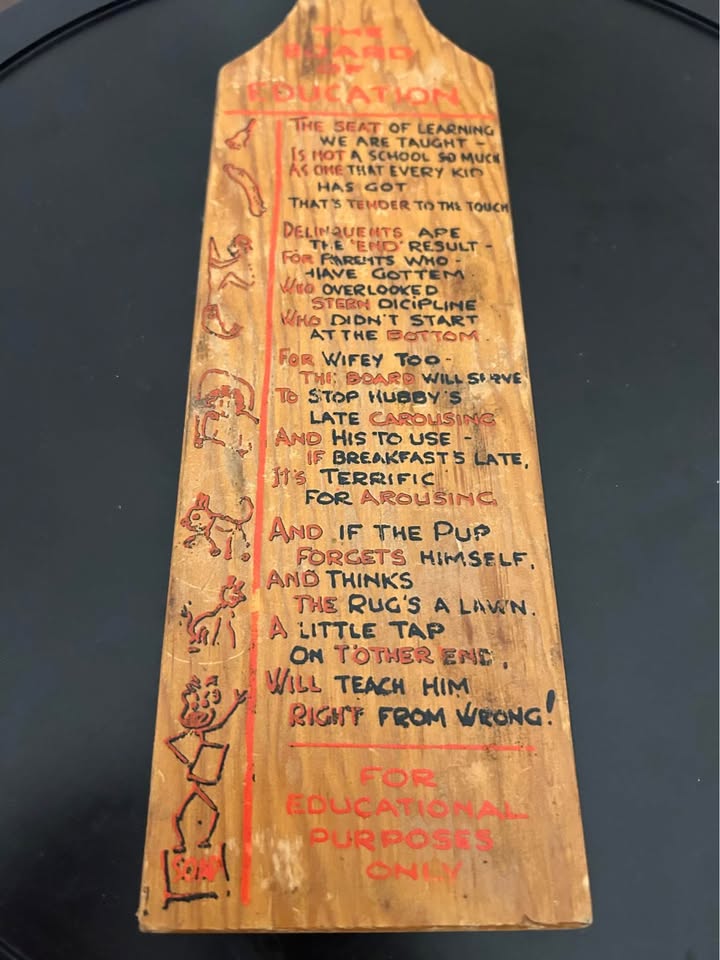 THE
BOARD
OF
EDUCATION
THE SEAT OF LEARNING
WE ARE TAUGHT -
IS NOT A SCHOOL SO MUCH
AS ONE THAT EVERY KID
HAS GOT
THAT'S TENDER TO THE TOUCH
DELINQUENTS ARE
THE 'END' RESULT -
FOR PARENTS WHO -
HAVE GOTTEM
WHO OVERLOOKED
STERN DICIPLINE
WHO DIDN'T START
AT THE BOTTOM.
FOR WIFEY TOO -
THE BOARD WILL SERVE
TO STOP HUBBY'S
LATE CAROUSING
AND HIS TO USE -
IF BREAKFAST'S LATE,
IT'S TERRIFIC
FOR AROUSING
AND IF THE PUP
FORGETS HIMSELF,
AND THINKS
THE RUG'S A LAWN.
A LITTLE TAP
ON T'OTHER END,
WILL TEACH HIM
RIGHT FROM WRONG!
FOR
EDUCATIONAL
PURPOSES
ONLY
SOAP